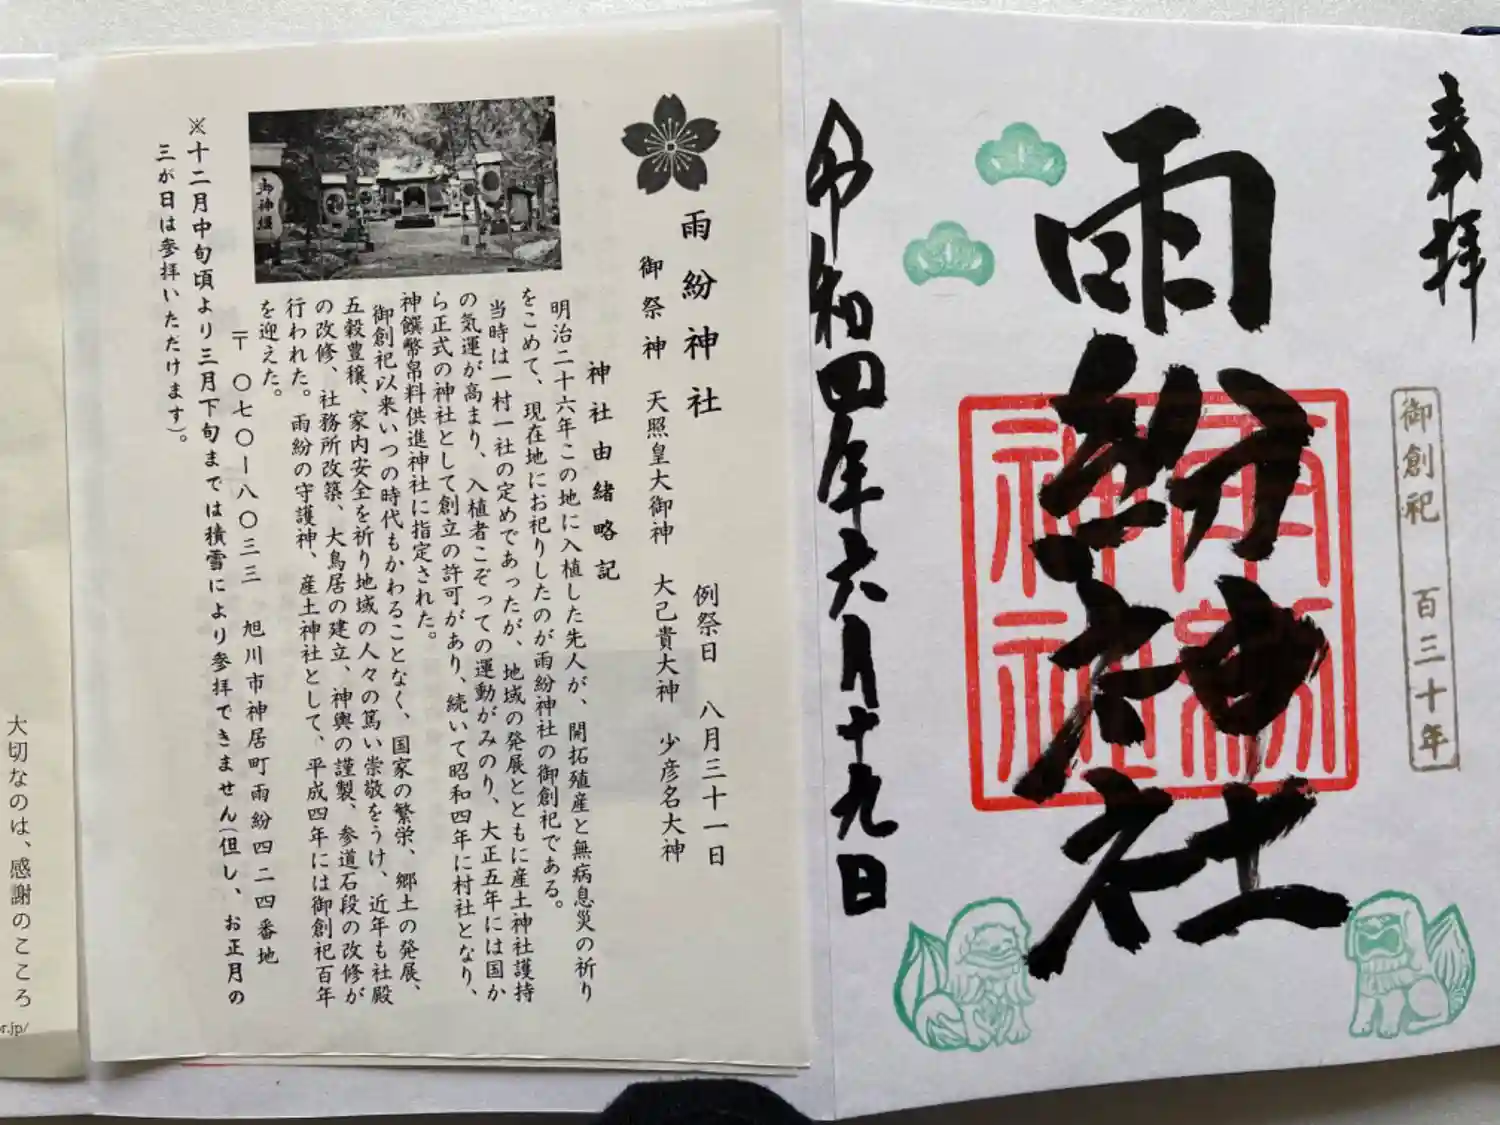 奉拝
御創祀 百三十年
雨紛神社
雨紛
神社
令和四年六月十九日
雨紛神社
例祭日 八月三十一日
御祭神 天照皇大御神 大己貴大神 少彦名大神
神社由緒略記
明治二十六年この地に入植した先人が、開拓殖産と無病息災の祈り
をこめて、現在地にお祀りしたのが雨紛神社の御創祀である。
当時は一村一社の定めであったが、地域の発展とともに産土神社護持
の気運が高まり、入植者こぞっての運動がみのり、大正五年には国か
ら正式の神社として創立の許可があり、続いて昭和四年に村社となり、
神饌幣帛料供進神社に指定された。
御創祀以来いつの時代もかわることなく、国家の繁栄、郷土の発展、
五穀豊穣、家内安全を祈り地域の人々の篤い崇敬をうけ、近年も社殿
の改修、社務所改築、大鳥居の建立、神輿の謹製、参道石段の改修が
行われた。雨紛の守護神、産土神社として、平成四年には御創祀百年
を迎えた。
〒〇七〇ー八〇三三 旭川市神居町雨紛四二四番地
※十二月中旬頃より三月下旬までは積雪により参拝できません(但し、お正月の
三が日は参拝いただけます)。
御神燈
大切なのは、感謝のこころ
r.jp/